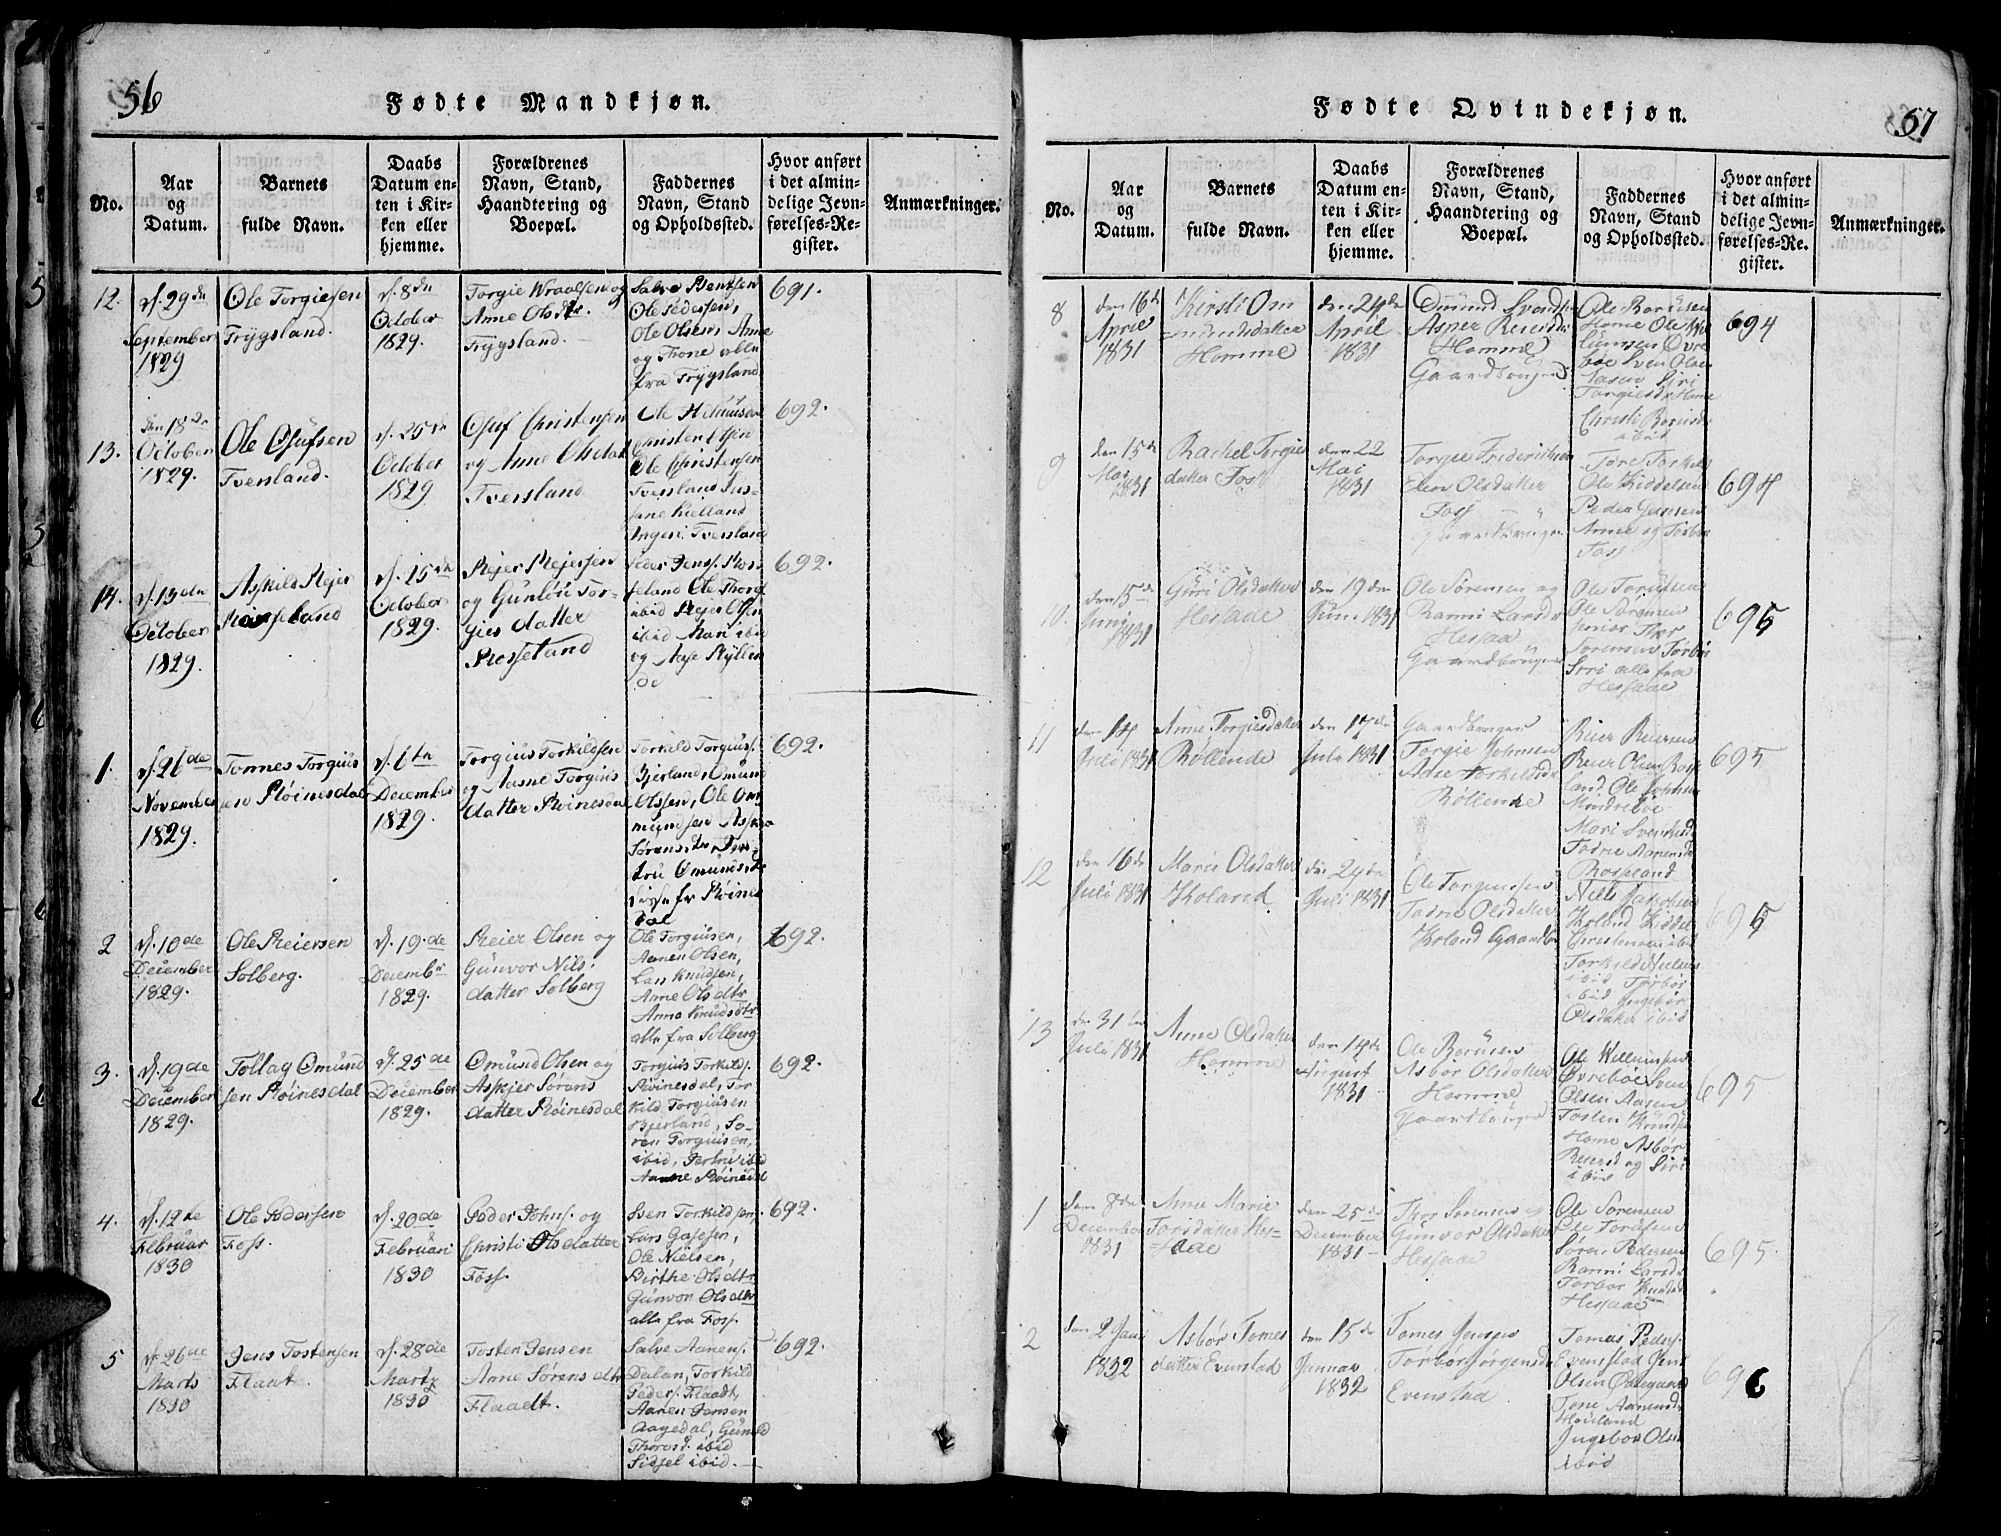 56
Fødte Mandkjøn.
No.
Aar
og
Datum.
Barnets
fulde Navn.
Daabs
Datum en-
ten i Kir-
ken eller
hjemme.
Forældrenes
Navn, Stand,
Haandtering og
Boepæl.
Faddernes
Navn, Stand
og Opholdssted.
Hvor anført
i det almin-
delige Jevn-
førelses-Re-
gister.
Anmærkninger.
12.
d. 29de
September
1829
Ole Torgiesen
Trÿgsland.
d. 8de
October
1829.
Torgie Wraalsen og
Anne Olsdtr.
Trÿgsland.
Salve Bentsen
Ole Pedersen,
Ole Olsen, Anne
og Trone alle
fra Trÿgsland
691.
13.
den 18de
October
1829.
Ole Olufsen
Tversland.
d. 25de
October
1829
Oluf Christensen
og Anne Olsdat
Tversland
Christen
Ole Christensen
Tversland
Kielland
Tversland
692.
14.
d. 13de
October
1829.
Askild Rejer
Rosseland
d. 25de
October
1829.
Rejer Rejersen
og Gunløu Tor-
gies datter
Rosseland
Peder Jens. Ros
seland Ole Thorg
ibid Rejer Olsen
ibid Mari ibid
og Aase
692.
1.
d. 26de
November
1829.
Tomes Torgius
sen Røinesdal
d. 6te
December
1829.
Torgius Torkildsen
og Aasne Torgius
datter Røinesdal
Torkild Torgiuss.
Bjerland, Omund
Olssen, Ole Om
mundsen
Sørens.
Omunds.
fr Røines
dal
692.
2
d. 10de
December
1829.
Ole Reiersen
Solberg.
d. 19de
December
1829.
Reier Olsen og
Gunvor Nils
datter Solberg
Ole Torgiusen,
Aanen Olsen,
Lars Knudsen,
Anne Olsdtr
Anna Knudsdtr
alle fra Solberg
692.
3.
d. 19de
December
1829.
Tollag Omund
sen Røinesdal
d. 25de
December
1829.
Omund Olsen og
Askjer Sørens
datter Røinesdal
Torgius Torkilds.
Røinesdal, Tor
kild Torgiusen
Bjerland, So-
ren Torgiusen,
ibid, Jertru ibid
Aanne Røinesdal
692.
4.
d. 12te
Februar
1830
Ole Pedersen
Foss.
d. 20de
Februari
1830
Peder Johns. og
Christi Olsdatter
Foss.
Sven Torkildsen,
Lars
Ole Nielsen,
Birthe Olsdtr
Gunvor Olsdtr
alle fra Foss.
692.
5
d. 26de
Marts
1830
Jens Tostensen
Flaat.
d. 28de
Marts
1830
Tosten Jensen
Anne Sørensdtr
Flaadt.
Salve Aanens.
Dalan, Torkild
Peders. Flaadt,
Aanen Jensen
Aagedal, Gunild
Thorsd. ibid
Sidsel ibid.
692.
57
Fødte Qvindekjøn.
No.
Aar
og
Datum.
Barnets
fulde Navn.
Daabs
Datum en-
ten i Kir-
ken eller
hjemme.
Forældrenes
Navn, Stand,
Haandtering og
Boepæl.
Faddernes
Navn, Stand
og Opholdssted.
Hvor anført
i det almin-
delige Jevn-
førelses-Re-
gister.
Anmærkninger.
8
den 16de
April
1831
Kirsti Om
undsdatter
Homme
den 24de
April
1831
Omund Svends
Asper Reiersd
Homme
Gaardbruger
Ole Borüsen
Home Ole Wil
lumsen Øvre
bøe Sven Olsen
Aasen Siri
Torgiesdtr Home
Christi
ibid
694
9
den 15de
Mai
1831
Rachel Torgies
datter Foss
den 22
Mai
1831
Torgie Friderichsen
Elen Olsdatter
Foss
Gaardbruger
Tore Torkels
Ole Kiddelsen
Peder Jensen
Anne og Torbor
Foss
694
10.
den 5de
Juni
1831
Guri Olsdatter
Hessaae
den 19den
Juni 1831
Ole Sørensen og
Ranni Larsdtr
Hessaae
Gaardbruger
Ole
Ole Sørensen
senior Thor
Sørensen Torbor
Siri alle fra
Hessaae
695
11
den 14
Juli 1831
Anne Torgiesdatter
Røllende
den 17de
Juli 1831
Gaardbruger
Torgie Johnsen
Aase Torkildsd
Røllende
Reier Reiersen
Reier Olsen Ros
land. Ole Johnsen
Mari
Todne Aanensd
Rosseland
695
12
den 16de
Juli 1831
Marie Olsdatter
Koland
den 24de
Juli 1831
Ole Torgiussen
Todne Olsdatter
Koland Gaardb
Niels Jakobsen
Koland Kiddel
Christensen ibid
Torkild Nielsen
ibid Torbor
ibid Ingebor
Olsdatter ibid
695
13
den 31te
Juli 1831
Anne Olsdatter
Homme
den 14de
August
1831
Ole Borüsen
Asbor Olsdatter
Homme
Gaardbruger
Ole Willumsen
Øvrebøe Sven
Olsen Aasen
Tosten Knuds
Home Asbør
Reiersd og Siri
ibid
695
1
den 8de
December
1831
Anne Marie
Torsdatter Hes-
saae
den 25de
December
1831
Thor Sørensen og
Gunvor Olsdatter
Hessaae
Ole Sørensen
Søren Pedersen
Ranni Larsd
Torbor Knudsd
Hessaae
695.
2
den 2 Janu
1832
Asbør Tomes
datter Evenstad
den 15de
Januar
1832
Tomes Jensen
Torbør Jørgensd
Evenstad
Tomas Peders.
Evenstad Jens
Olsen Ødegaard
Tone Aanensd
Høieland
Ingebor Olsd
ibid
696